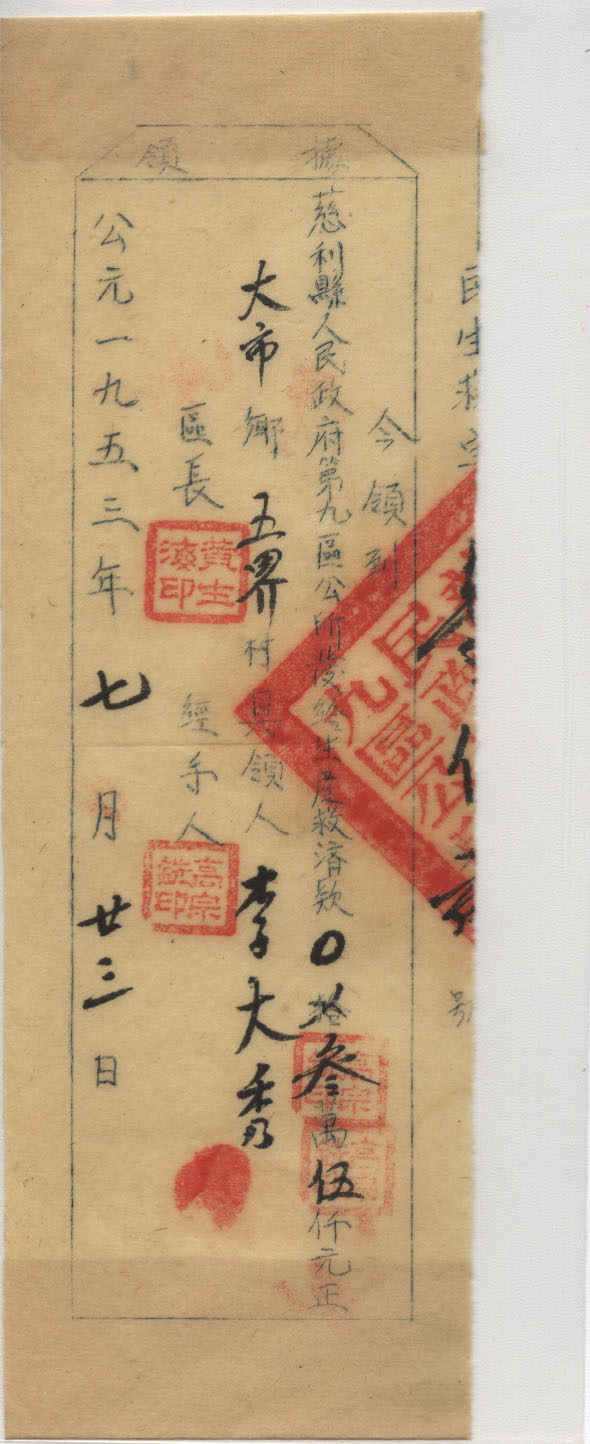 民生救字
號
領據
今領到
慈利縣人民政府第九區公所發給生產救濟欵0拾叁萬伍仟元正
大市鄉五界村具領人李大秀
區長
黃生濱印
經手人
高宗銑印
公元一九五三年七月廿三日